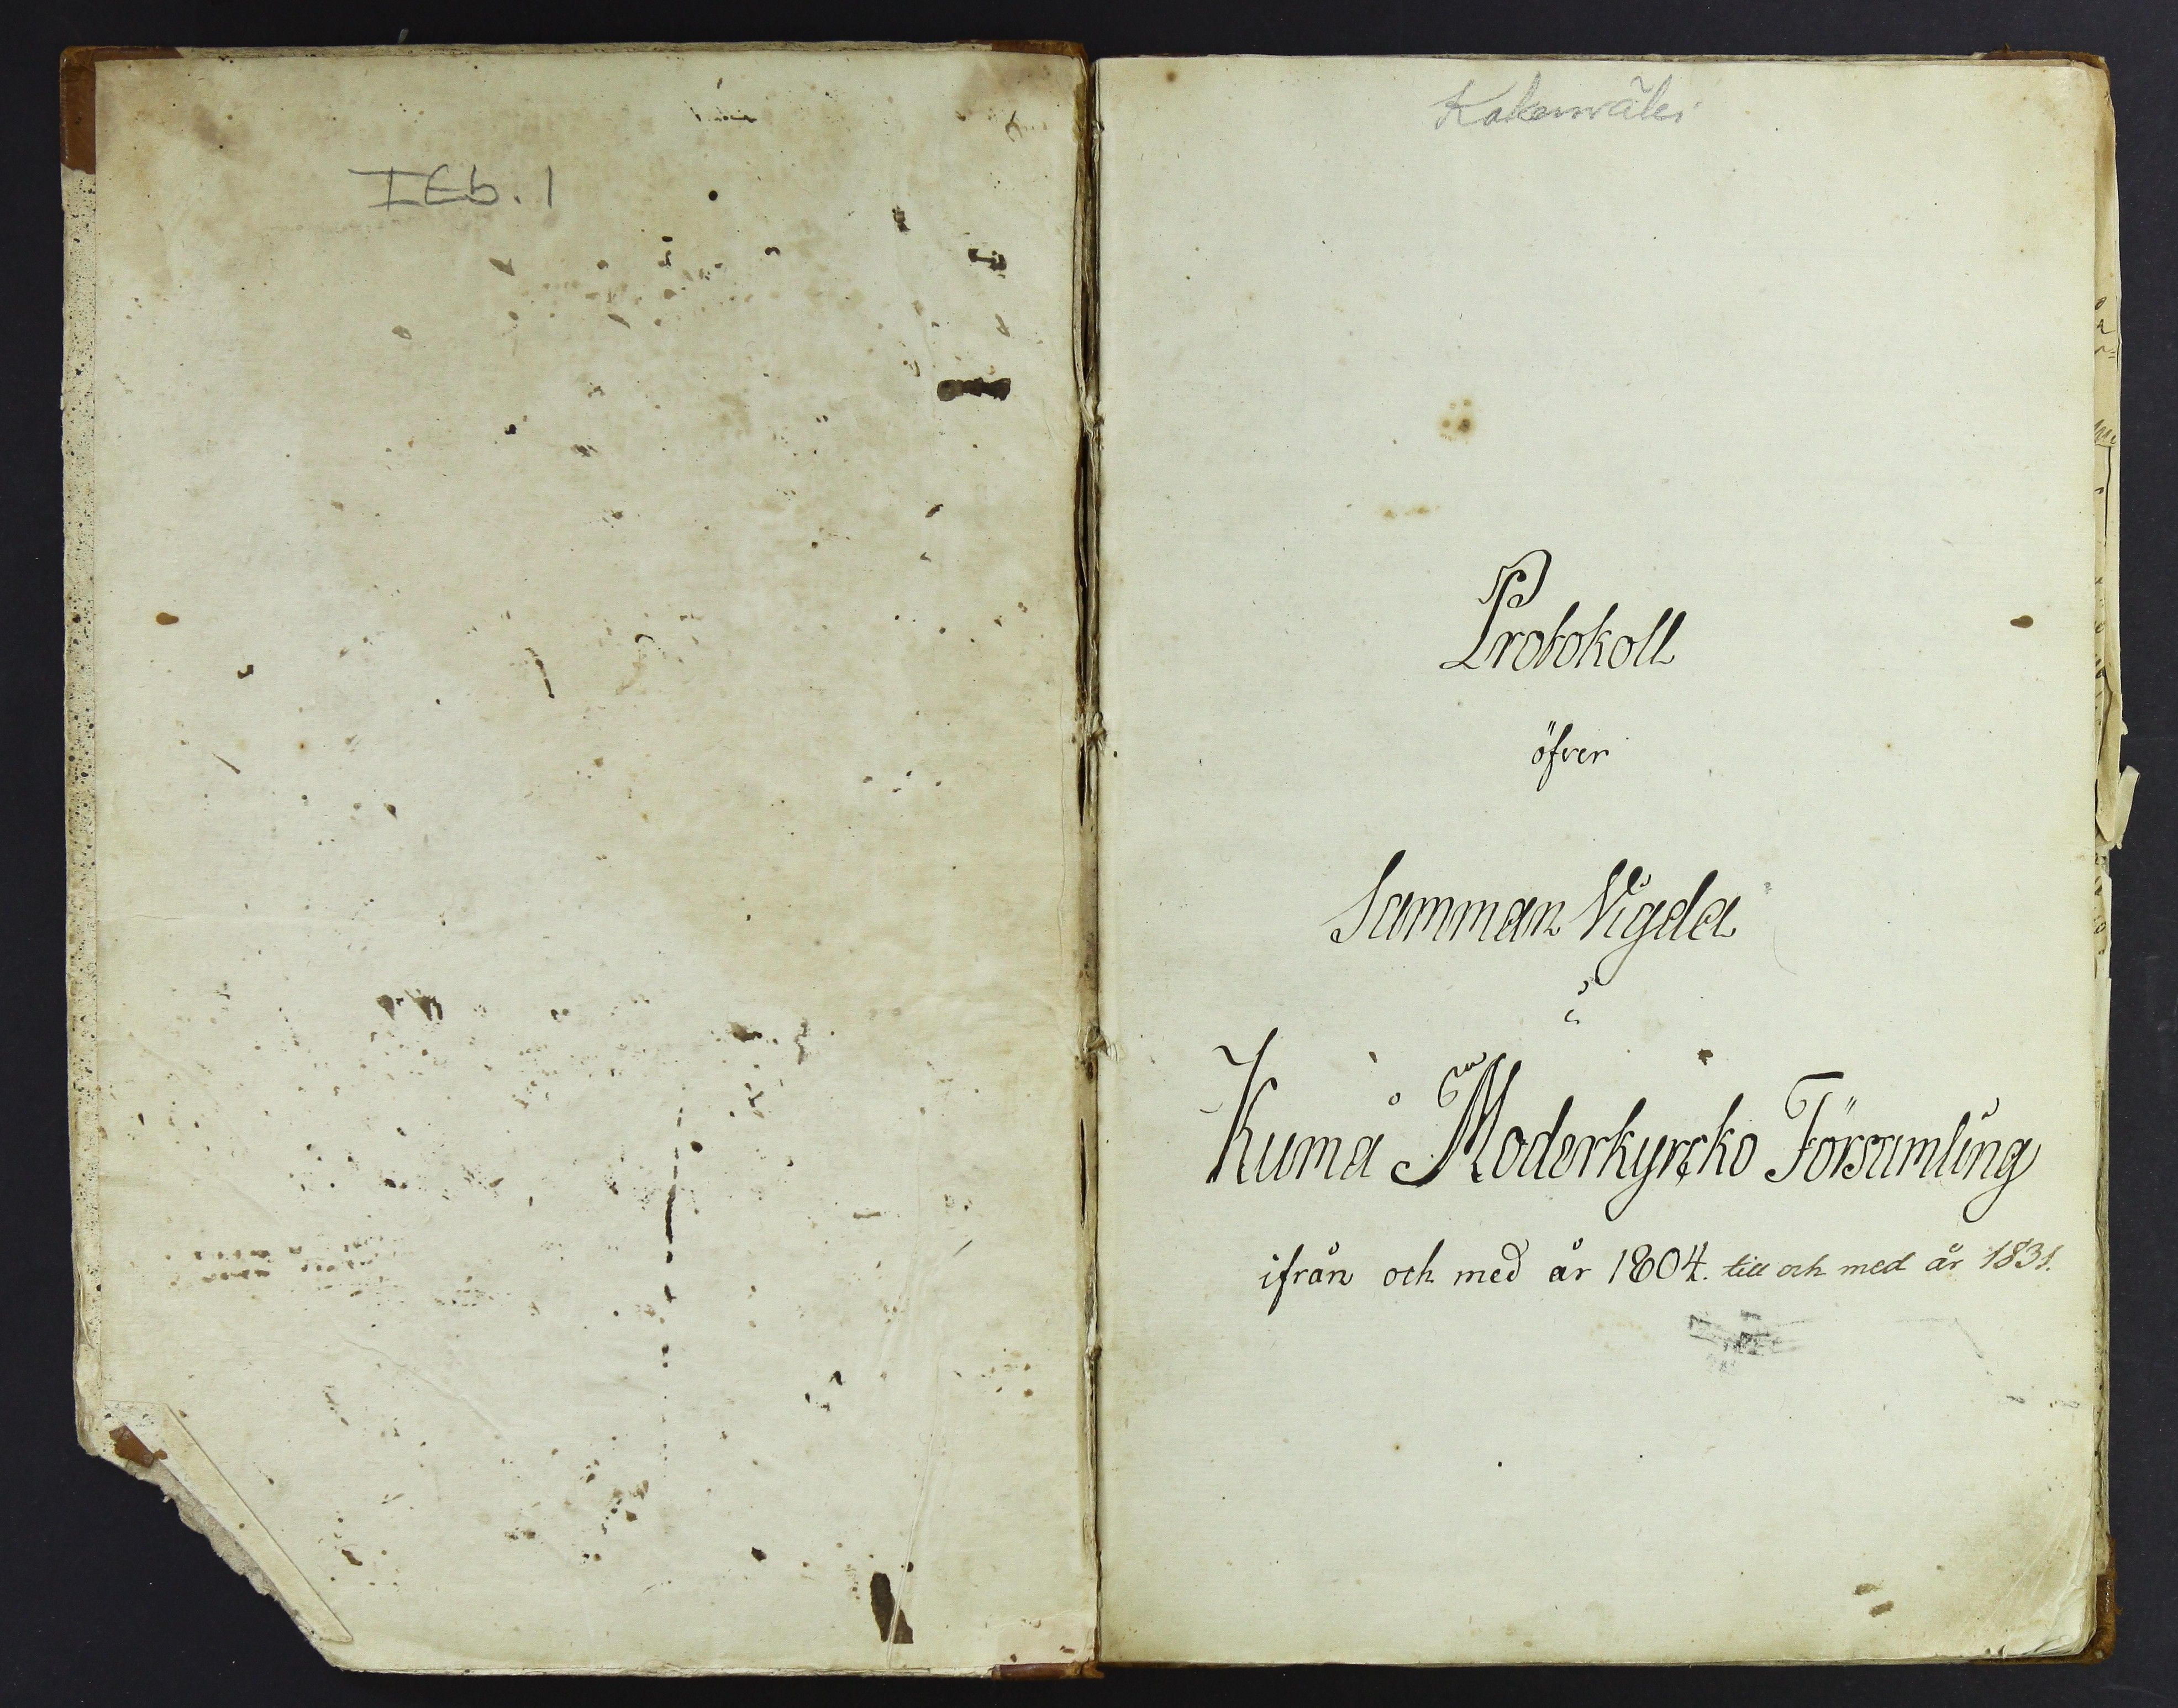 IEb. 1
Kokemäki
Protokoll
öfver
Samman Vigda
i
Kumå Moderkyrcko Församling
ifrån och med år 1804. till och med år 1831.